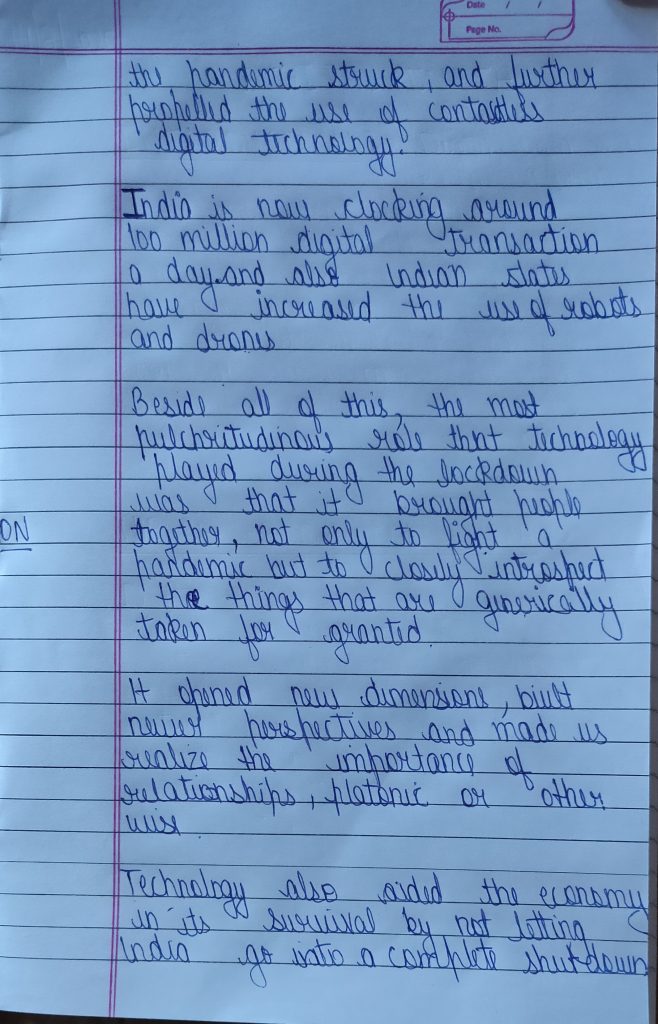 Date / /
Page No.
the pandemic struck, and further
porpelled the use of contactless
digital technology.
India is now clocking around
100 million digital Transaction
a day.and also Indian states
have increased the use of robots
and drones
Beside all of this, the most
pulchritudinous role that technology
played during the lockdown
was that it brought people
ON
together, not only to fight a
pandemic but to closely introspect
the things that are generically
taken for granted.
It opened new dimensions, built
newer perspectives and made us
realize the importance of
relationships, platonic or other
wise.
Technology also aided the economy
in its survival by not letting
India go into a complete shutdown